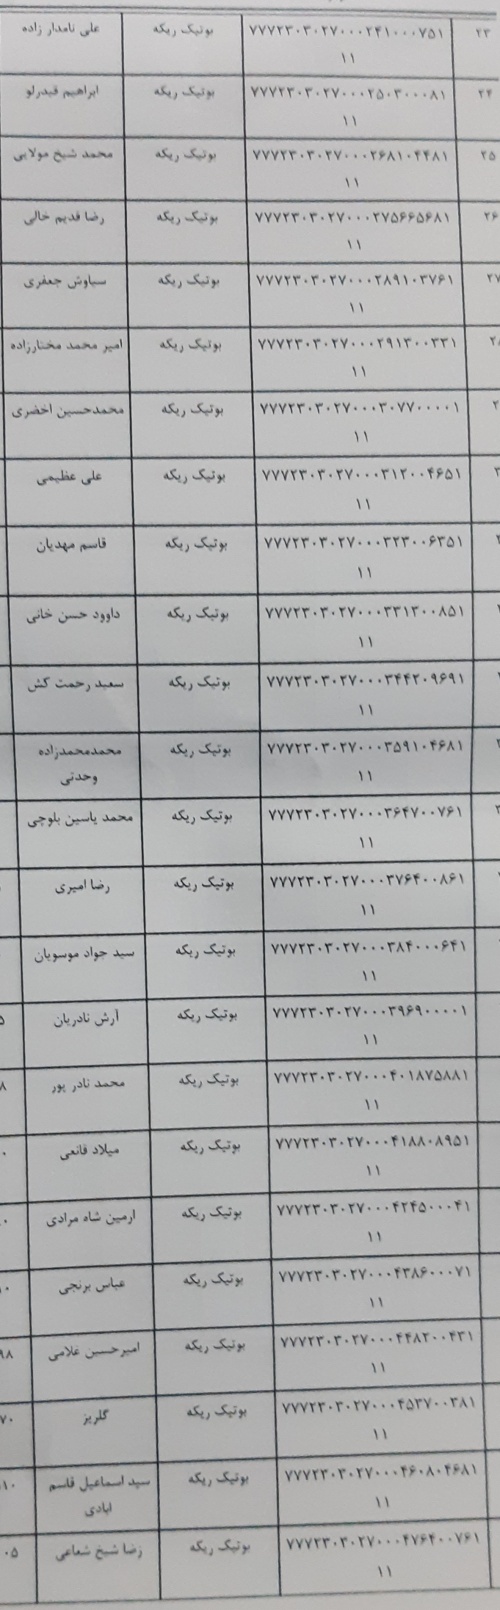 ۲۳ ۷۷۷۲۳۰۳۰۲۷۰۰۰۲۴۱۰۰۰۷۵۱ بوتیک ریکه علی نامدار زاده
۱۱
۲۴ ۷۷۷۲۳۰۳۰۲۷۰۰۰۲۵۰۳۰۰۰۸۱ بوتیک ریکه ابراهیم قیدرلو
۱۱
۲۵ ۷۷۷۲۳۰۳۰۲۷۰۰۰۲۶۸۱۰۴۴۸۱ بوتیک ریکه محمد شیخ مولایی
۱۱
۲۶ ۷۷۷۲۳۰۳۰۲۷۰۰۰۲۷۵۶۶۵۶۸۱ بوتیک ریکه رضا قدیم خالی
۱۱
۲۷ ۷۷۷۲۳۰۳۰۲۷۰۰۰۲۸۹۱۰۳۷۶۱ بوتیک ریکه سیاوش جعفری
۱۱
۷۷۷۲۳۰۳۰۲۷۰۰۰۲۹۱۳۰۰۳۳۱ بوتیک ریکه امیر محمد مختارزاده
۱۱
۷۷۷۲۳۰۳۰۲۷۰۰۰۳۰۷۷۰۰۰۰۱ بوتیک ریکه محمدحسین اخضری
۱۱
۷۷۷۲۳۰۳۰۲۷۰۰۰۳۱۲۰۰۴۶۵۱ بوتیک ریکه علی عظیمی
۱۱
۷۷۷۲۳۰۳۰۲۷۰۰۰۳۲۳۰۰۶۳۵۱ بوتیک ریکه قاسم مهدیان
۱۱
۷۷۷۲۳۰۳۰۲۷۰۰۰۳۳۱۳۰۰۸۵۱ بوتیک ریکه داوود حسن خانی
۱۱
۷۷۷۲۳۰۳۰۲۷۰۰۰۳۴۴۲۰۹۶۹۱ بوتیک ریکه سعید رحمت کش
۱۱
۷۷۷۲۳۰۳۰۲۷۰۰۰۳۵۹۱۰۴۶۸۱ بوتیک ریکه محمدمحمدزاده
۱۱ وحدتی
۷۷۷۲۳۰۳۰۲۷۰۰۰۳۶۴۷۰۰۷۶۱ بوتیک ریکه محمد یاسین بلوچی
۱۱
۷۷۷۲۳۰۳۰۲۷۰۰۰۳۷۶۴۰۰۸۶۱ بوتیک ریکه رضا امیری
۱۱
۷۷۷۲۳۰۳۰۲۷۰۰۰۳۸۴۰۰۰۶۴۱ بوتیک ریکه سید جواد موسویان
۱۱
۷۷۷۲۳۰۳۰۲۷۰۰۰۳۹۶۹۰۰۰۰۱ بوتیک ریکه آرش نادریان ۵
۱۱
۷۷۷۲۳۰۳۰۲۷۰۰۰۴۰۱۸۷۵۸۸۱ بوتیک ریکه محمد نادر پور ۸
۱۱
۷۷۷۲۳۰۳۰۲۷۰۰۰۴۱۸۸۰۸۹۵۱ بوتیک ریکه میلاد قانعی ۰
۱۱
۷۷۷۲۳۰۳۰۲۷۰۰۰۴۲۴۵۰۰۰۴۱ بوتیک ریکه ارمین شاه مرادی ۰
۱۱
۷۷۷۲۳۰۳۰۲۷۰۰۰۴۳۸۶۰۰۰۷۱ بوتیک ریکه عباس برنجی ۱۰
۱۱
۷۷۷۲۳۰۳۰۲۷۰۰۰۴۴۸۲۰۰۴۳۱ بوتیک ریکه امیرحسین غلامی ۹۸
۱۱
۷۷۷۲۳۰۳۰۲۷۰۰۰۴۵۳۷۰۰۳۸۱ بوتیک ریکه گلریز ۷۰
۱۱
۷۷۷۲۳۰۳۰۲۷۰۰۰۴۶۰۸۰۴۶۸۱ بوتیک ریکه سید اسماعیل قاسم ۱۰
۱۱ ابادی
۷۷۷۲۳۰۳۰۲۷۰۰۰۴۷۶۴۰۰۷۶۱ بوتیک ریکه رضا شیخ شعاعی ۰۵
۱۱